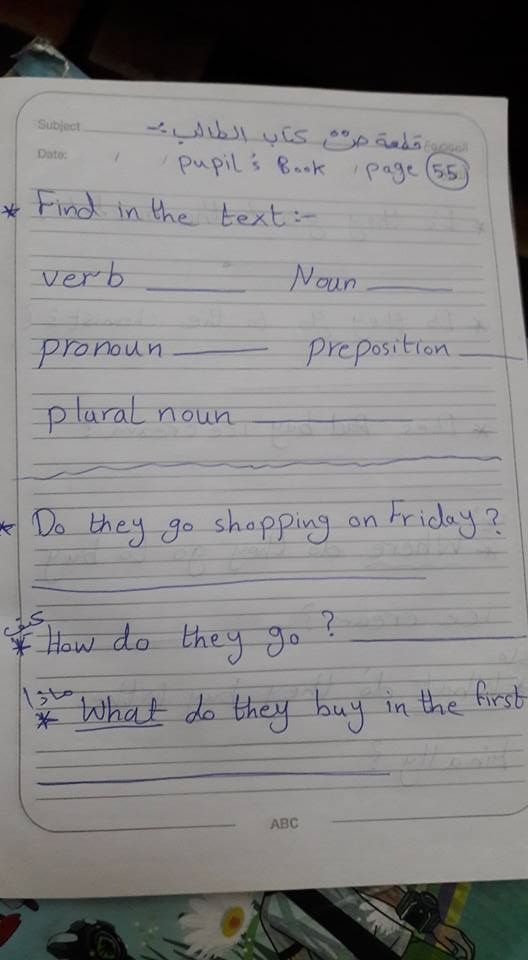 Subject قطعة من كتاب الطالب :-
Date: / / pupil's Book , page 55
* Find in the text :-
verb ______ Noun ______
pronoun ______ preposition ______
plural noun ______
* Do they go shopping on Friday?
كيف
* How do they go ? ______
ماذا
* What do they buy in the first
ABC